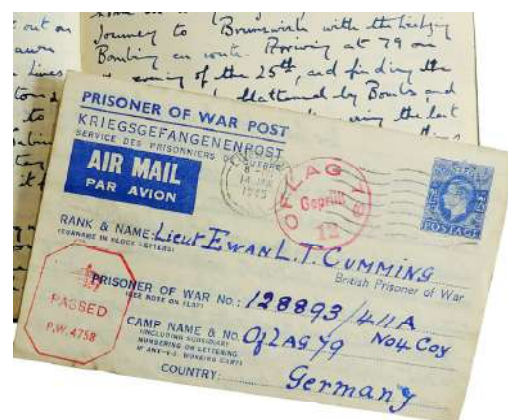 out on
Journey to Brunswick with the
Bombing en route. Arriving at 79 on
evening of the 25th, and finding the
flattened by Bombs and
the last
Lines
to
PRISONER OF WAR POST
KRIEGSGEFANGENENPOST
SERVICE DES PRISONNIERS DE GUERRE
AIR MAIL
PAR AVION
1945
OFLAG
Geprüft
12
POSTAGE
RANK & NAME: Lieut EWAN L.T. CUMMING
(SURNAME IN BLOCK LETTERS)
British Prisoner of War
PRISONER OF WAR No.: 128893/411A
(SEE NOTE ON FLAP)
PASSED
P.W. 4758
CAMP NAME & No. OflAG 79 No4 Coy
(INCLUDING SUBSIDIARY
NUMBERING OR LETTERING
IF ANY
COUNTRY: Germany